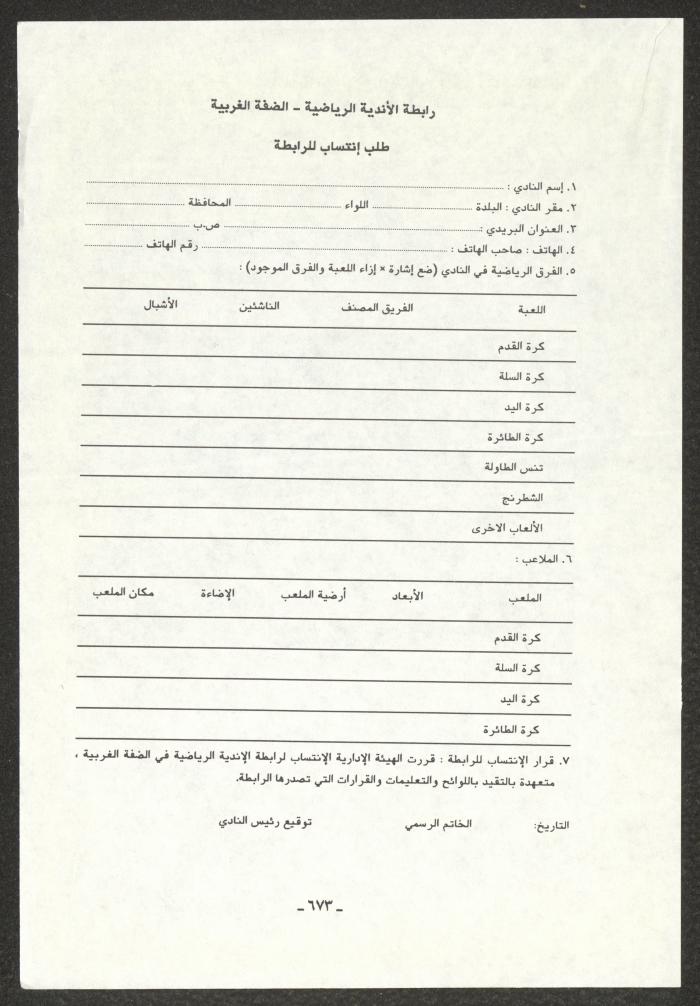 رابطة الأندية الرياضية – الضفة الغربية
طلب إنتساب للرابطة
١. إسم النادي :
٢. مقر النادي : البلدة اللواء المحافظة
٣. العنوان البريدي : ص.ب
٤. الهاتف : صاحب الهاتف : رقم الهاتف
٥. الفرق الرياضية في النادي (ضع إشارة × إزاء اللعبة والفرق الموجود) :
اللعبة الفريق المصنف الناشئين الأشبال
كرة القدم
كرة السلة
كرة اليد
كرة الطائرة
تنس الطاولة
الشطرنج
الألعاب الاخرى
٦. الملاعب :
الملعب الأبعاد أرضية الملعب الإضاءة مكان الملعب
كرة القدم
كرة السلة
كرة اليد
كرة الطائرة
٧. قرار الإنتساب للرابطة : قررت الهيئة الإدارية الإنتساب لرابطة الإندية الرياضية في الضفة الغربية ،
متعهدة بالتقيد باللوائح والتعليمات والقرارات التي تصدرها الرابطة.
التاريخ: الخاتم الرسمي توقيع رئيس النادي
– ٦٧٣ –